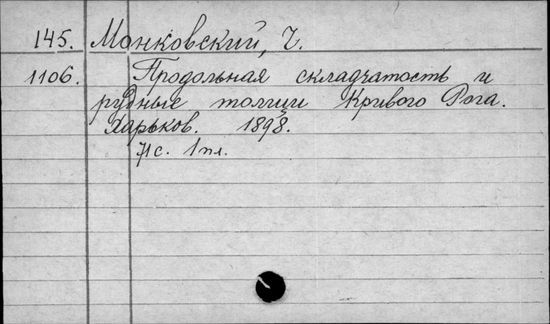 145. Монковский, Ч.
1106. Продольная складчатость и
рудные толщи Кривого Рога.
Харьков. 1898.
71 с. 1 пл.